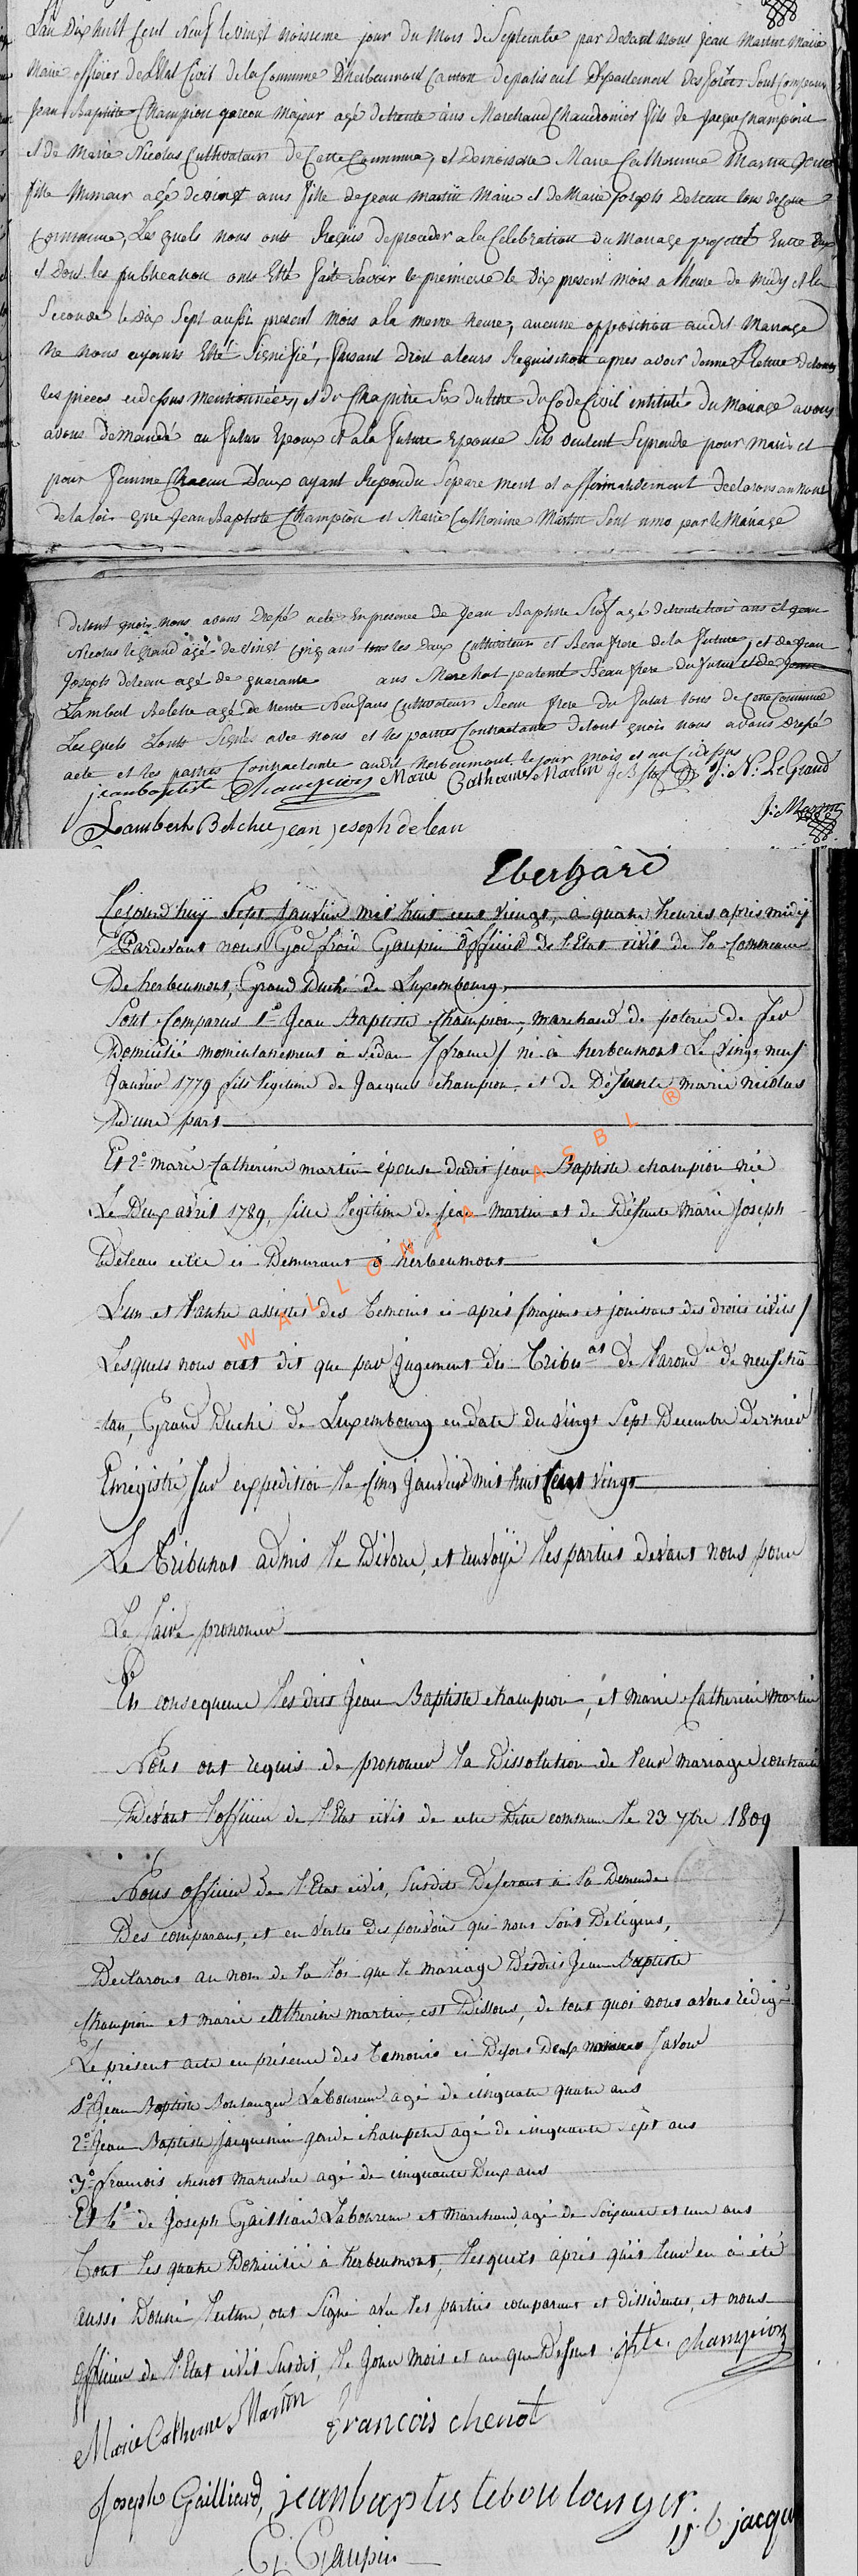 L'an Dix huit Cent Neuf le vingt troisieme jour du Mois de Septembre par Devant nous Jean Martin Maire
Maire officier de L'Etat Civil de la Commune D'herbeumont Canton de paliseul Departement des forêts Sont Comparus
Jean Baptiste Champion garcon Majeur agé de trente ans Marchand Chaudronier fils de Jacque Champion
et de Marie Nicolas Cultivateur de Cette Commune, et Demoiselle Marie Catherinne Martin
fille Mineur agé de vingt ans fille de Jean Martin Maire et de Marie Joseph Deleau tous de Cette
Commune, Les quels nous onts Requis de proceder a la Celebration du Mariage projetté Entre Eux
et Dont les publication onts Etté faite Savoir le premiere le Dix present mois a l'heure de midy et la
Seconde le Dix Sept aussi present Mois a la meme heure, aucune opposition audit Mariage
Ne nous ayants Etté Signifié, faisant Droit a leurs Requisition apres avoir donné Lecture de toutes
les pieces cidessus mentionnées, et du Chapitre Six du titre du Code Civil intitulé du Mariage avons
avons demandé au futur Epoux et a la future Epouse Sils veulent Seprendre pour Maris et
pour femme Chacun Deux ayant Repondu Separe ment et affirmativement Declarons au Nom
de la loi que Jean Baptiste Champion et Marie Catherinne Martin Sont unis par le Mariage
De tout quoi nous avons Drefsé acte En presence de Jean Baptiste Stof agé de trente trois ans et Jean
Nicolas le grand agé de vingt Cinq ans tous les Deux Cultivateur et Beau frere de la future, et de Jean
Joseph deleau agé de quarante ans Marchal patenté Beau frere du futur et de
Lambert Belche agé de trente Neuf ans Cultivateur Beau frere du futur tous de Cette Commune
Les quels Lonts Signés avec nous et les parties Contractante de tout quoi nous avons Drefsé
acte et les parties Contractente audit herbeumont le jour mois et an Cidessus
jeanbaptiste Champion Marie Catherine Martin J B Stof J: N: LeGrand
Lambert Belche jean joseph deleau J: Martin
Eberhard
Cejourd'huy Sept Janvier mil huit cent vingt, à quatre heures après midy
Pardevant nous Godfroid Gaupin officier de l'Etat civil de la Commune
De herbeumont, Grand Duché de Luxembourg,
Sont Comparus 1º Jean Baptiste champion, marchand de poterie de fer
Domicilié momentanement à Sedan / france / né à herbeumont Le vingt neuf
Janvier 1779 fils legitime de Jacques champion et de Défunte marie nicolas
D'une part
Et 2º marie Catherine martin épouse dudit jean Baptiste champion née
Le Deux avril 1789, fille legitime de jean martin et de Défunte Marie Joseph
Deleau celle ci Demurant à herbeumont
L'un et l'autre assistés des temoins ci-après / majeurs et jouissant des droits civils /
Lesquels nous ont dit que par jugement du Tribunal de l'arond. de neufchâ
-teau, Grand Duché de Luxembourg en date du vingt Sept Decembre dernier
Enregistré sur expedition le Cinq janvier mil huit Cent vingt
Le Tribunal admis le Divorce, et renvoyé les parties devant nous pour
Le faire prononcer
En consequence les dits Jean Baptiste champion, et marie Catherine Martin
Nous ont requis de prononcer la Dissolution de leur mariage contracté
Devant l'officier de l'Etat civil de cette Ditte commune le 23 7bre 1809
Nous officier de l'Etat civil, Susdits Déferant à la Demende
Des comparans, et en vertu des pouvoirs qui nous Sont Délégués,
Declarons au nom de la loi que le mariage Desdits Jean Baptiste
Champion et marie Catherine martin est Dissous, de tout quoi nous avons rédigé
Le présent acte en présence des temoins ci Desous nommés Savoir
1º Jean Baptiste Boulanger Laboureur agé de cinquante quatre ans
2º Jean Baptiste jacquemin garde champetre agé de cinquante Sept ans
3º francois chenot agé de cinquante Deux ans
Et 4º de Joseph Gaillard Laboureur et Marchand agé de Soixante et un ans
Tout les quatre Domicilié à herbeumont, lesquels après qu'il leur en a été
aussi Donné lecture, ont Signé avec les parties comparant et dissidentes, et nous
officier de l'Etat civil Susdit, le Jour Mois et an que Dessus. Champion
Marie Catherine Martin francois chenot
Joseph Gailliard, jeanbaptisteboulanger
G: Gaupin
WALLONIA ASBL ®